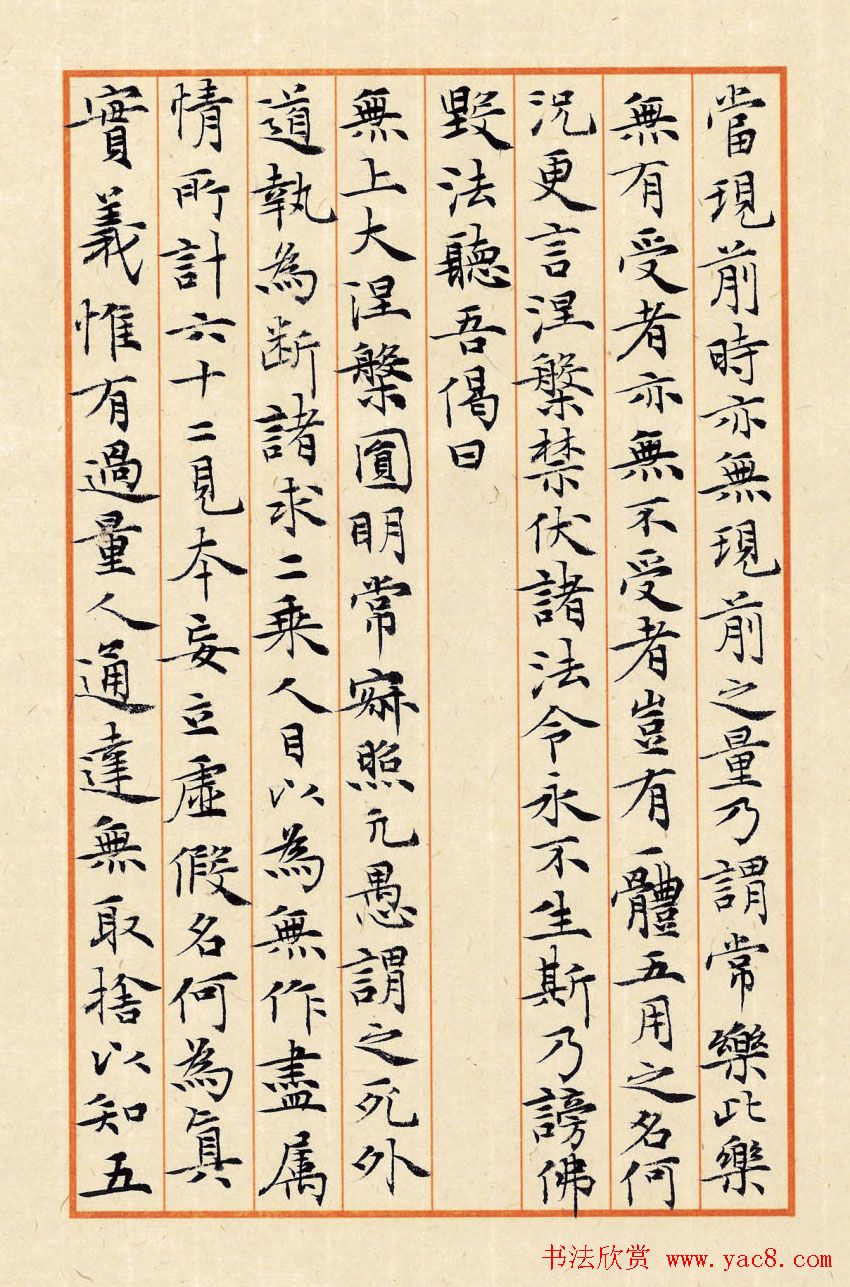 當現前時亦無現前之量乃謂常樂此樂
無有受者亦無不受者豈有一體五用之名何
況更言涅槃禁伏諸法令永不生斯乃謗佛
毀法聽吾偈曰
無上大涅槃圓明常寂照凢愚謂之死外
道執為断諸求二乘人目以為無作盡属
情所計六十二見本妄立虛假名何為真
實義惟有過量人通達無取捨以知五
书法欣赏 www.yac8.com